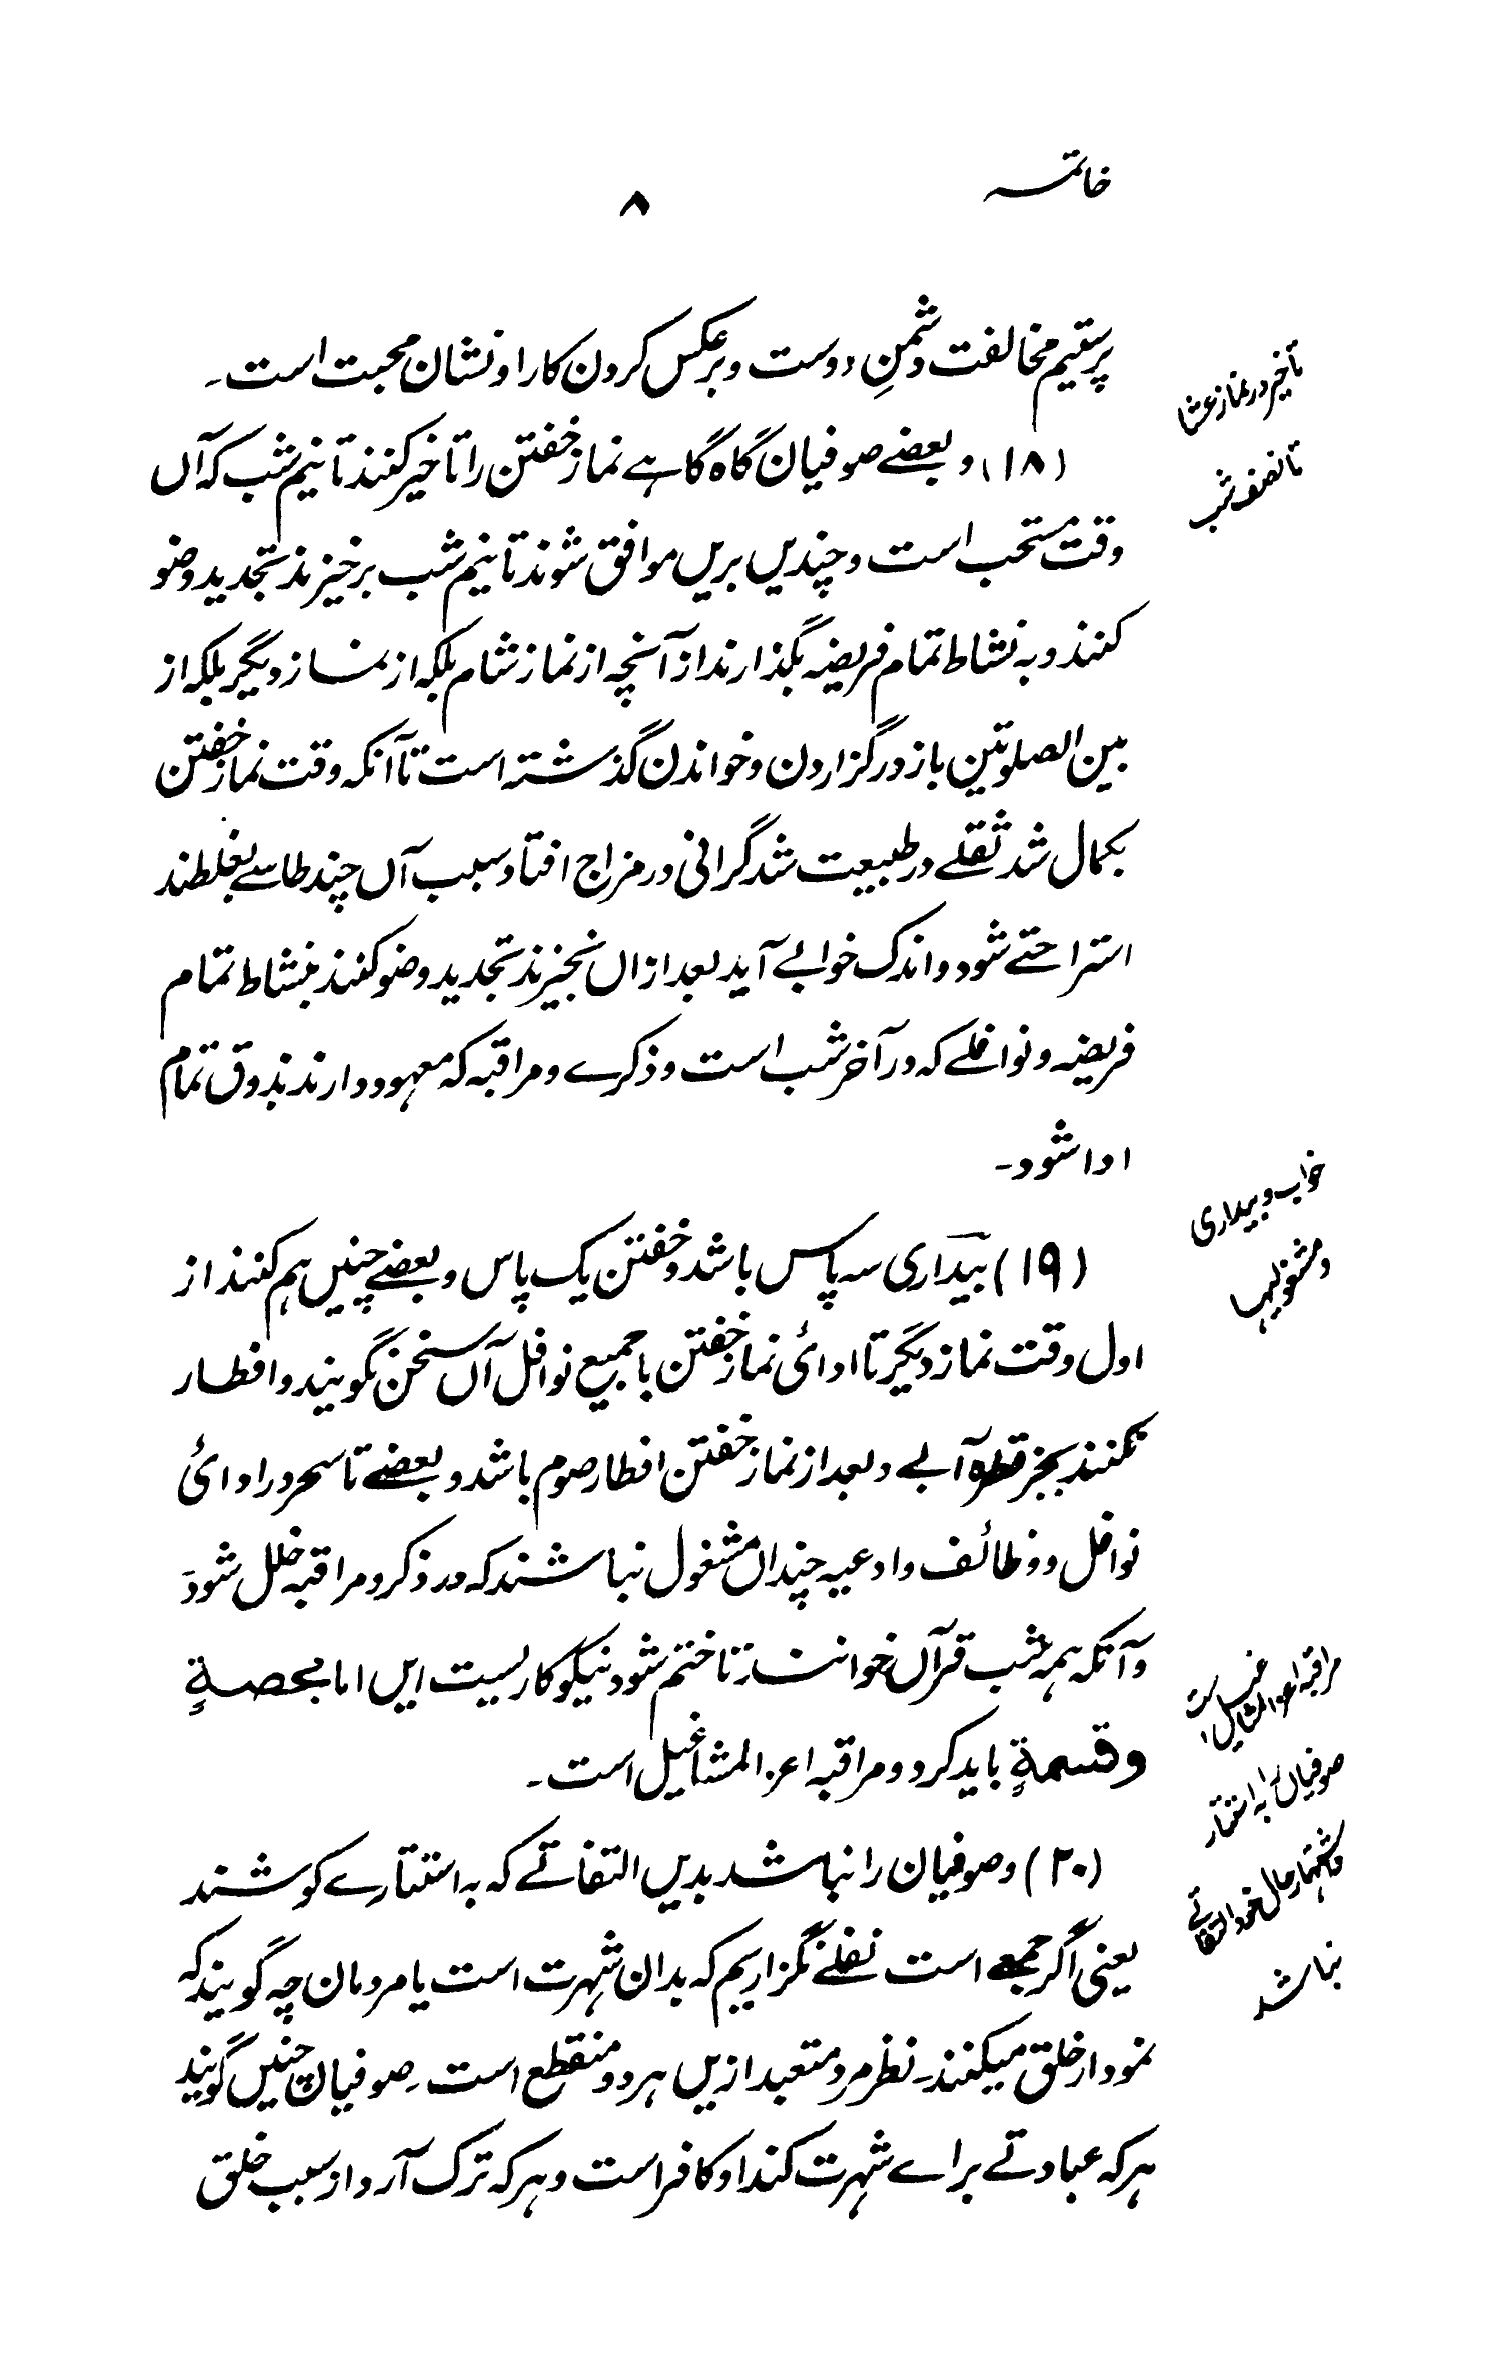 خاتمہ
۸
پرستیم مخالفت دشمنِ دوست و برعکس کردن کار او نشان محبت است۔
تاخیر در نماز عشا
تا نصف شب
(۱۸) و بعضے صوفیان گاہ گاہے نماز خفتن را تاخیر کنند تا نیم شب کہ آں
وقت مستحب است و چندیں بریں موافق شوند تا نیم شب برخیزند تجدید وضو
کنند و بہ نشاط تمام فریضہ بگذارند از آنچہ از نماز شام بلکہ از نماز دیگر بلکہ از
بین الصلوتین باز در گزاردن و خواندن گذشتہ است تا آنکہ وقت نماز خفتن
بکمال شد ثقلے در طبیعت شد گرانی در مزاج افتاد سبب آں چند طاسے بغلطند
استراحتے شود و اندک خوابے آید بعد ازاں بخیزند تجدید وضو کنند بنشاط تمام
فریضہ و نوافلے کہ در آخر شب است و ذکرے و مراقبہ کہ معہود دارند بذوق تمام
ادا شود۔
خواب و بیداری
و مشغولیہا
(۱۹) بیداری سہ پاس باشد و خفتن یک پاس و بعضے چنیں ہم کنند از
اول وقت نماز دیگر تا ادائ نماز خفتن با جمیع نوافل آں سخن نگویند و افطار
نکنند بجز قطرہ آبے و بعد از نماز خفتن افطار صوم باشد و بعضے تا سحر در ادائ
نوافل و وظائف و ادعیہ چنداں مشغول نباشند کہ در ذکر و مراقبہ خلل شود
و آنکہ ہمہ شب قرآں خوانند تا ختم شود نیکو کاریست ایں اما بحصةٍ
وقسمةٍ باید کرد و مراقبہ اعز المشاغیل است۔
مراقبہ اعز المشاغیل است
صوفیاں را بہ استتار
و اشتہار حال خود التفاتے
نباشد
(۲۰) و صوفیان را نباشد بدیں التفاتے کہ بہ استتارے کوشند
یعنی اگر جمعے است نفلے نگزاریم کہ بدان شہرت است یا مردمان چہ گویند کہ
نمود از خلق میکنند۔ نظر مرد متعبد ازیں ہر دو منقطع است۔ صوفیان چنیں گویند
ہر کہ عبادتے براے شہرت کند او کافر است و ہر کہ ترک آرد از سبب خلق